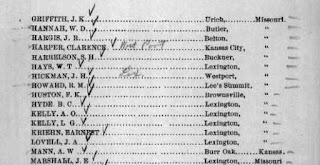 GRIFFITH, J. K. Urich, Missouri.
HANNAH, W. D. Butler, "
HARGIS, J. R. Belton, "
HARPER, CLARENCE West Point Kansas City, "
HARRELSON, S. H. Buckner, "
HAYS, W. T. Lexington, "
HICKMAN, J. H. Westport, "
HOWARD, R. M. Lee's Summit, "
HUSTON, F. K. Brownsville, "
HYDE, B. C. Lexington, "
KELLY, A. O. Lexington, "
KELLY, L. G. Lexington, "
KRIEHN, EARNEST Lexington, "
LOVELL, J. A. Lexington, "
MANN, A. W. Burr Oak, Kansas.
MARSHALL, J. E. Lexington, Missouri